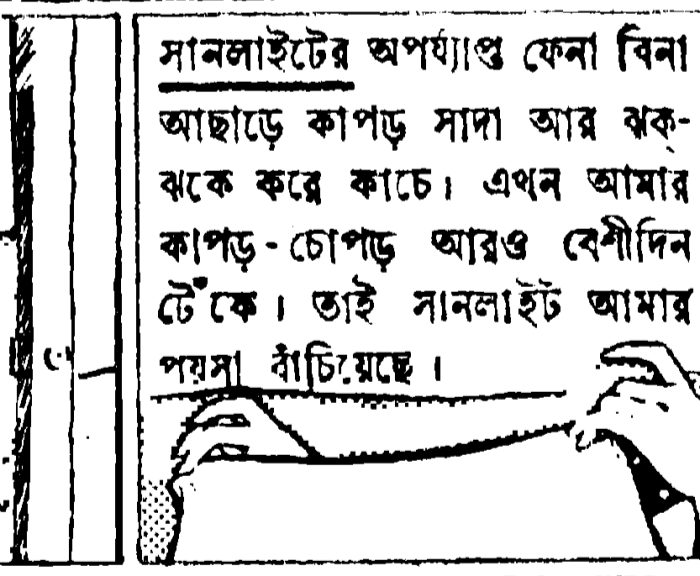 সানলাইটের অপর্য্যাপ্ত ফেনা বিনা
আছাড়ে কাপড় সাদা আর ঝক্-
ঝকে করে কাচে। এখন আমার
কাপড়-চোপড় আরও বেশীদিন
টেঁকে। তাই সানলাইট আমার
পয়সা বাঁচিয়েছে।